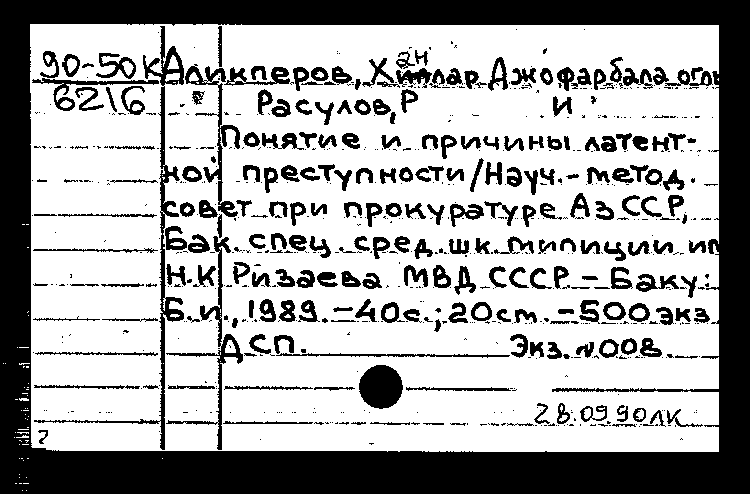 90-50К Аликперов, Ханлар Джофарбала оглы
6216 Расулов, Р И.
Понятие и причины латент-
ной преступности/Науч.-метод.
совет при прокуратуре АзССР,
Бак. спец. сред. шк. милиции им
Н.К Ризаева МВД СССР - Баку:
Б.и., 1989. -40с.; 20ст. -500экз
ДСП. Экз. N008.
28.09.90ЛК
2